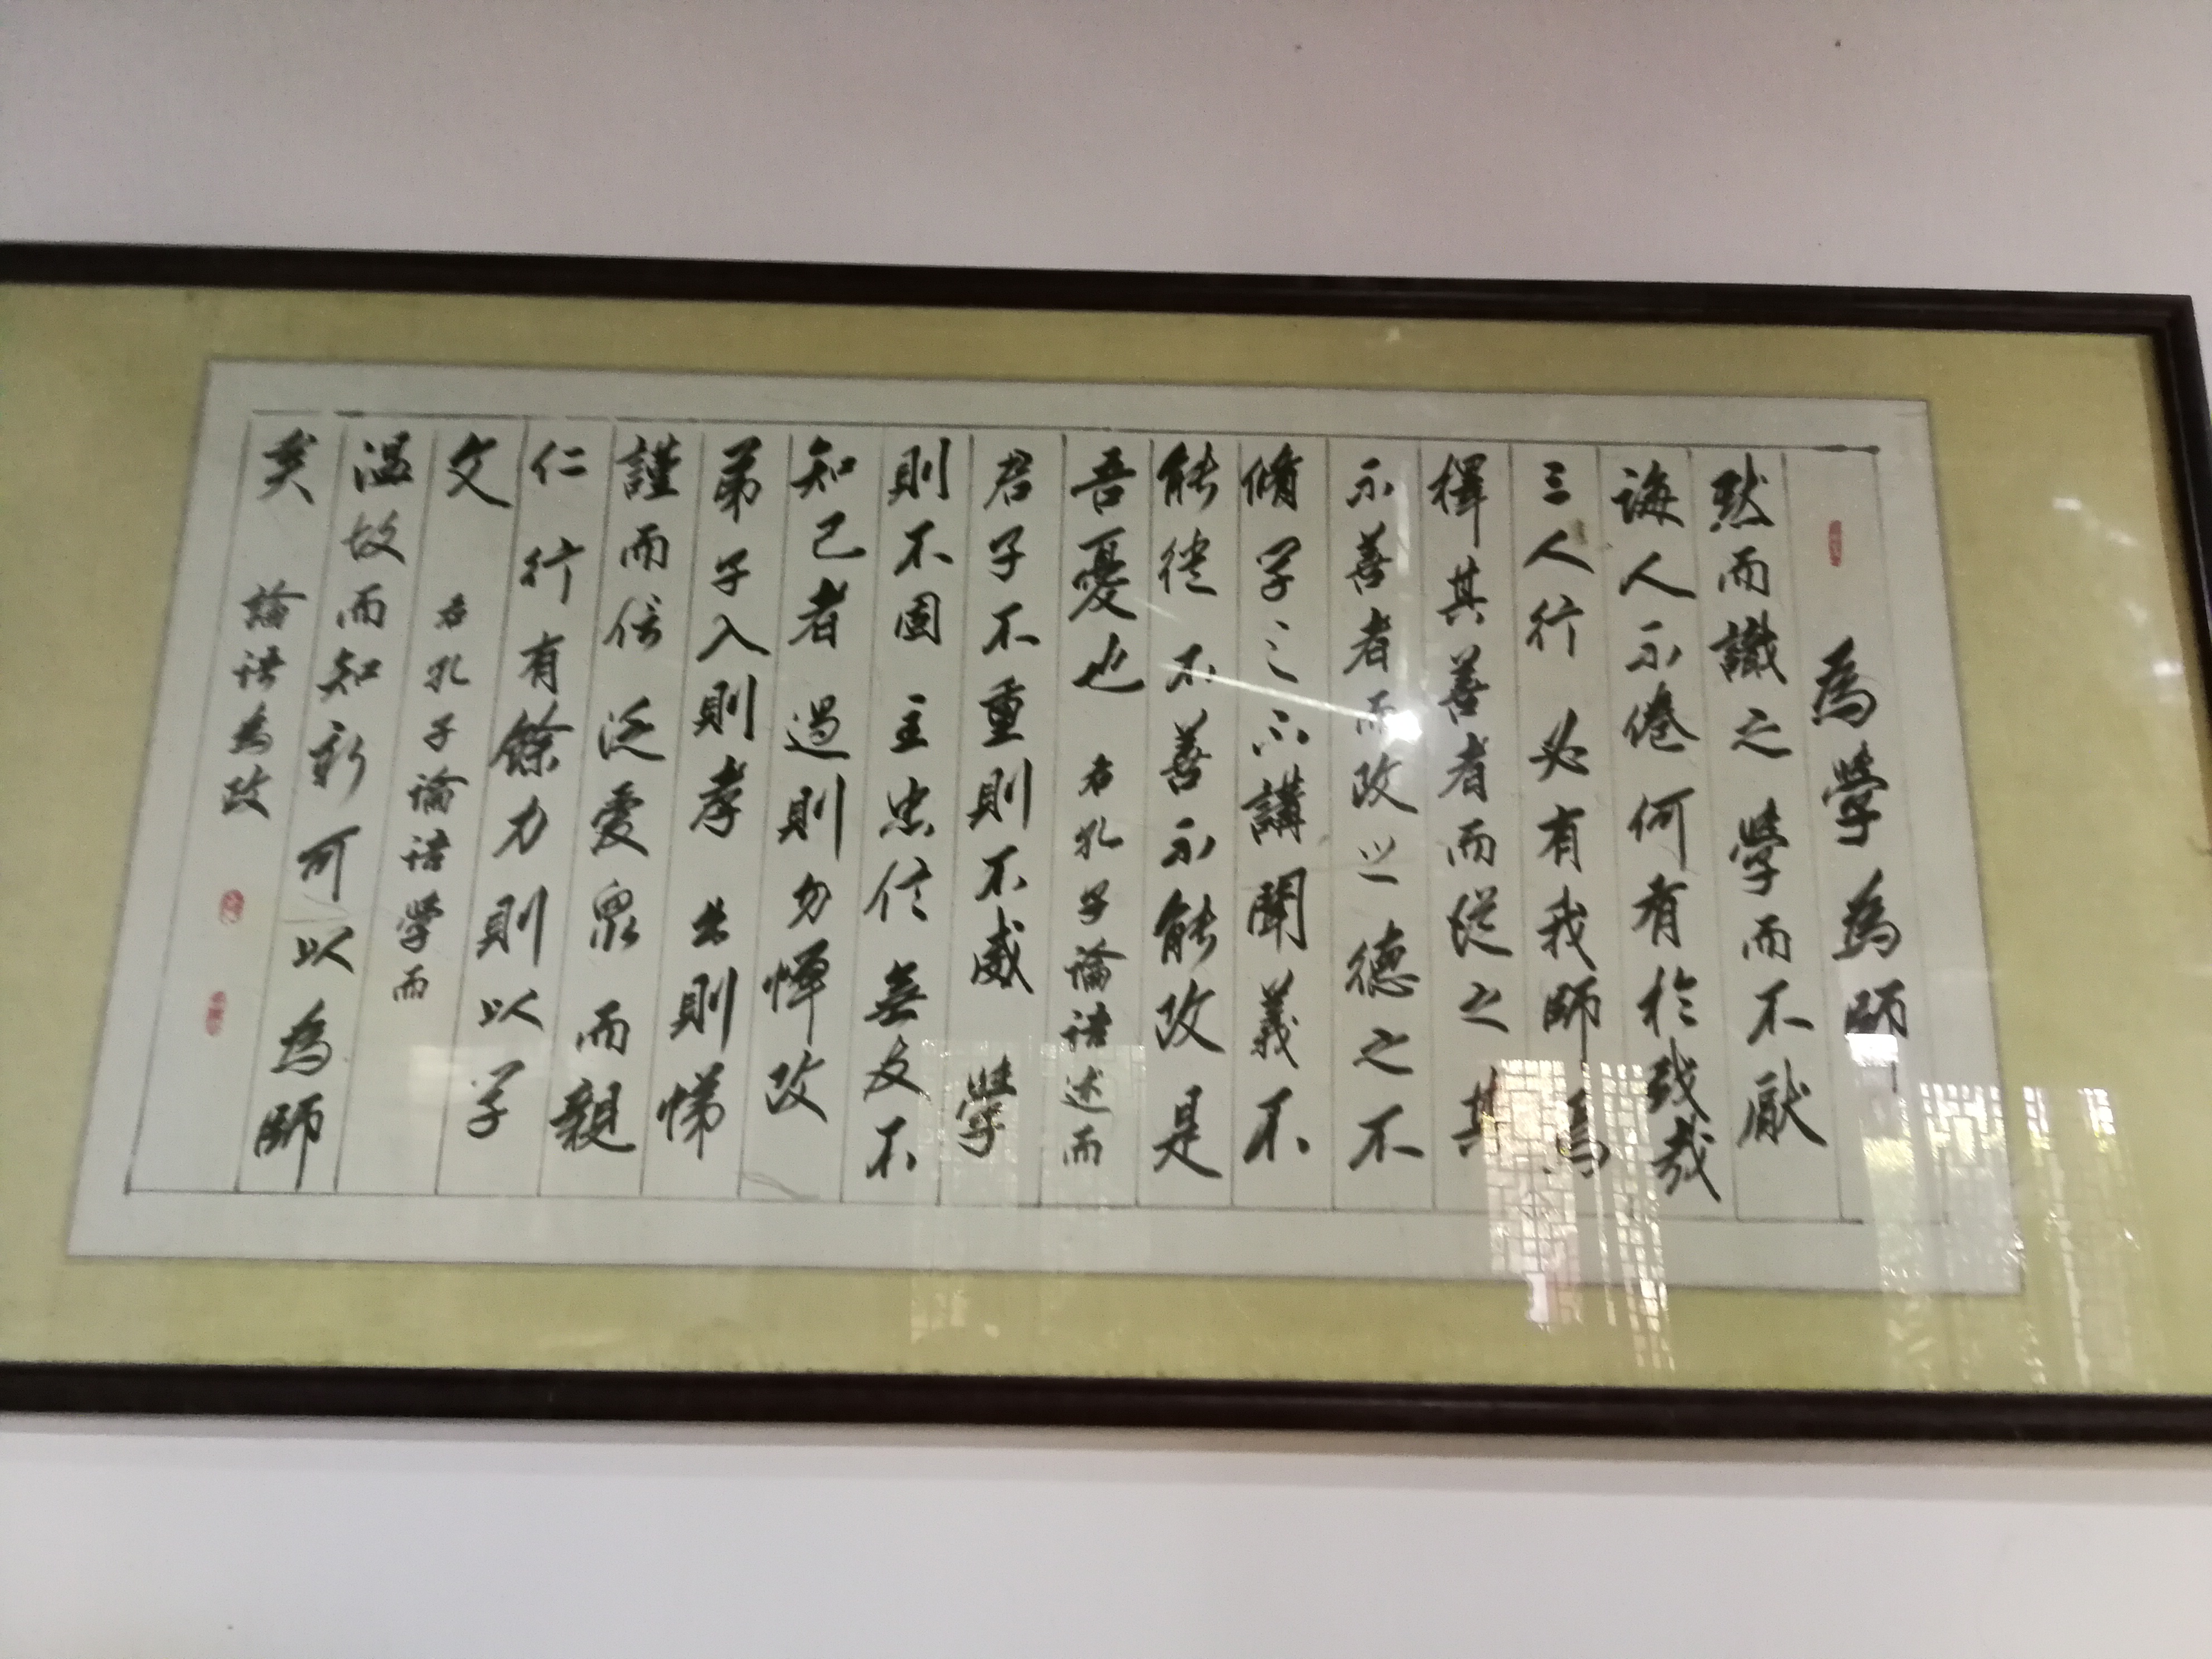 為學為師
默而識之學而不厭
誨人不倦何有於我哉
三人行必有我師焉
擇其善者而從之其
不善者而改之德之不
脩学之不講聞義不
能徙不善不能改是
吾憂也 右孔子論語述而
君子不重則不威學
則不固主忠信無友不
知己者過則勿憚改
弟子入則孝出則悌
謹而信泛愛眾而親
仁行有餘力則以学
文 右孔子論語學而
温故而知新可以為師
矣 論語為政